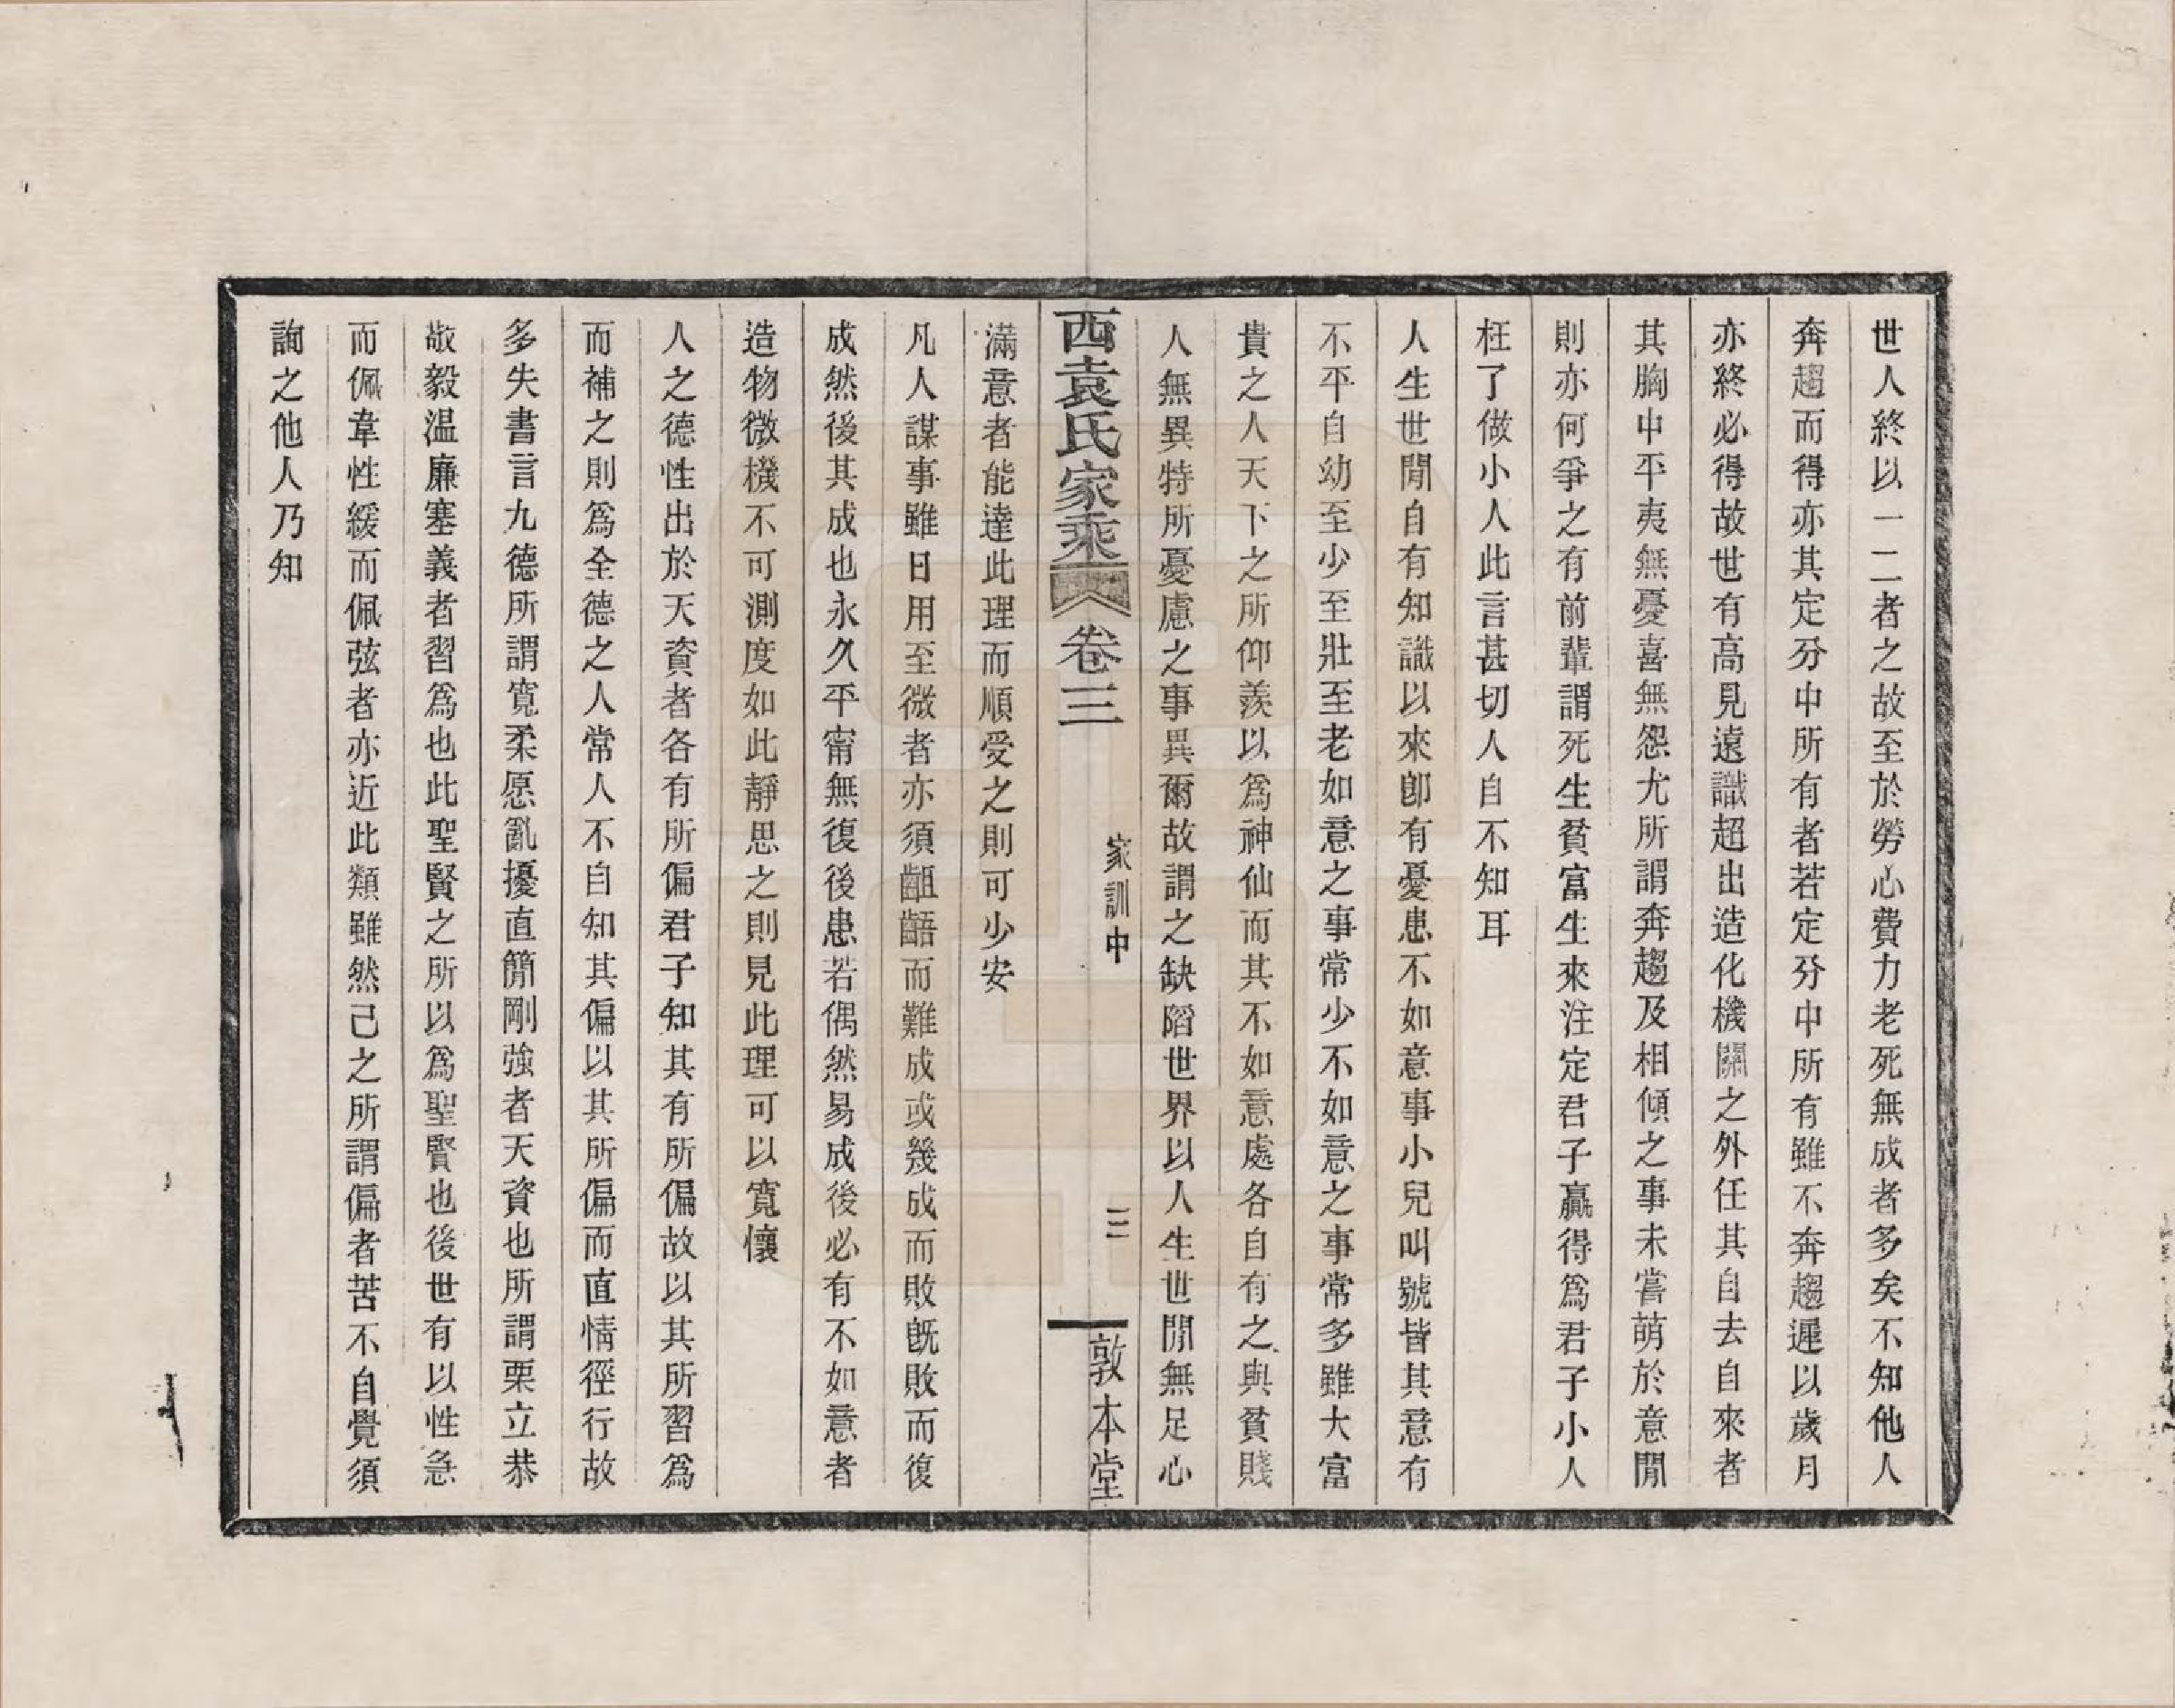 世人終以一二者之故至於勞心費力老死無成者多矣不知他人
奔趨而得亦其定分中所有者若定分中所有雖不奔趨遲以歲月
亦終必得故世有高見遠識超出造化機關之外任其自去自來者
其胸中平夷無憂喜無怨尤所謂奔趨及相傾之事未嘗萌於意閒
則亦何爭之有前輩謂死生貧富生來注定君子贏得爲君子小人
枉了做小人此言甚切人自不知耳
人生世閒自有知識以來卽有憂患不如意事小兒叫號皆其意有
不平自幼至少至壯至老如意之事常少不如意之事常多雖大富
貴之人天下之所仰羨以爲神仙而其不如意處各自有之與貧賤
人無異特所憂慮之事異爾故謂之缺陷世界以人生世閒無足心
西袁氏家乘
卷三
家訓中
三
敦本堂
滿意者能達此理而順受之則可少安
凡人謀事雖日用至微者亦須齟齬而難成或幾成而敗旣敗而復
成然後其成也永久平甯無復後患若偶然易成後必有不如意者
造物微機不可測度如此靜思之則見此理可以寬懷
人之德性出於天資者各有所偏君子知其有所偏故以其所習爲
而補之則爲全德之人常人不自知其偏以其所偏而直情徑行故
多失書言九德所謂寬柔愿亂擾直簡剛強者天資也所謂栗立恭
敬毅溫廉塞義者習爲也此聖賢之所以爲聖賢也後世有以性急
而佩韋性緩而佩弦者亦近此類雖然己之所謂偏者苦不自覺須
詢之他人乃知